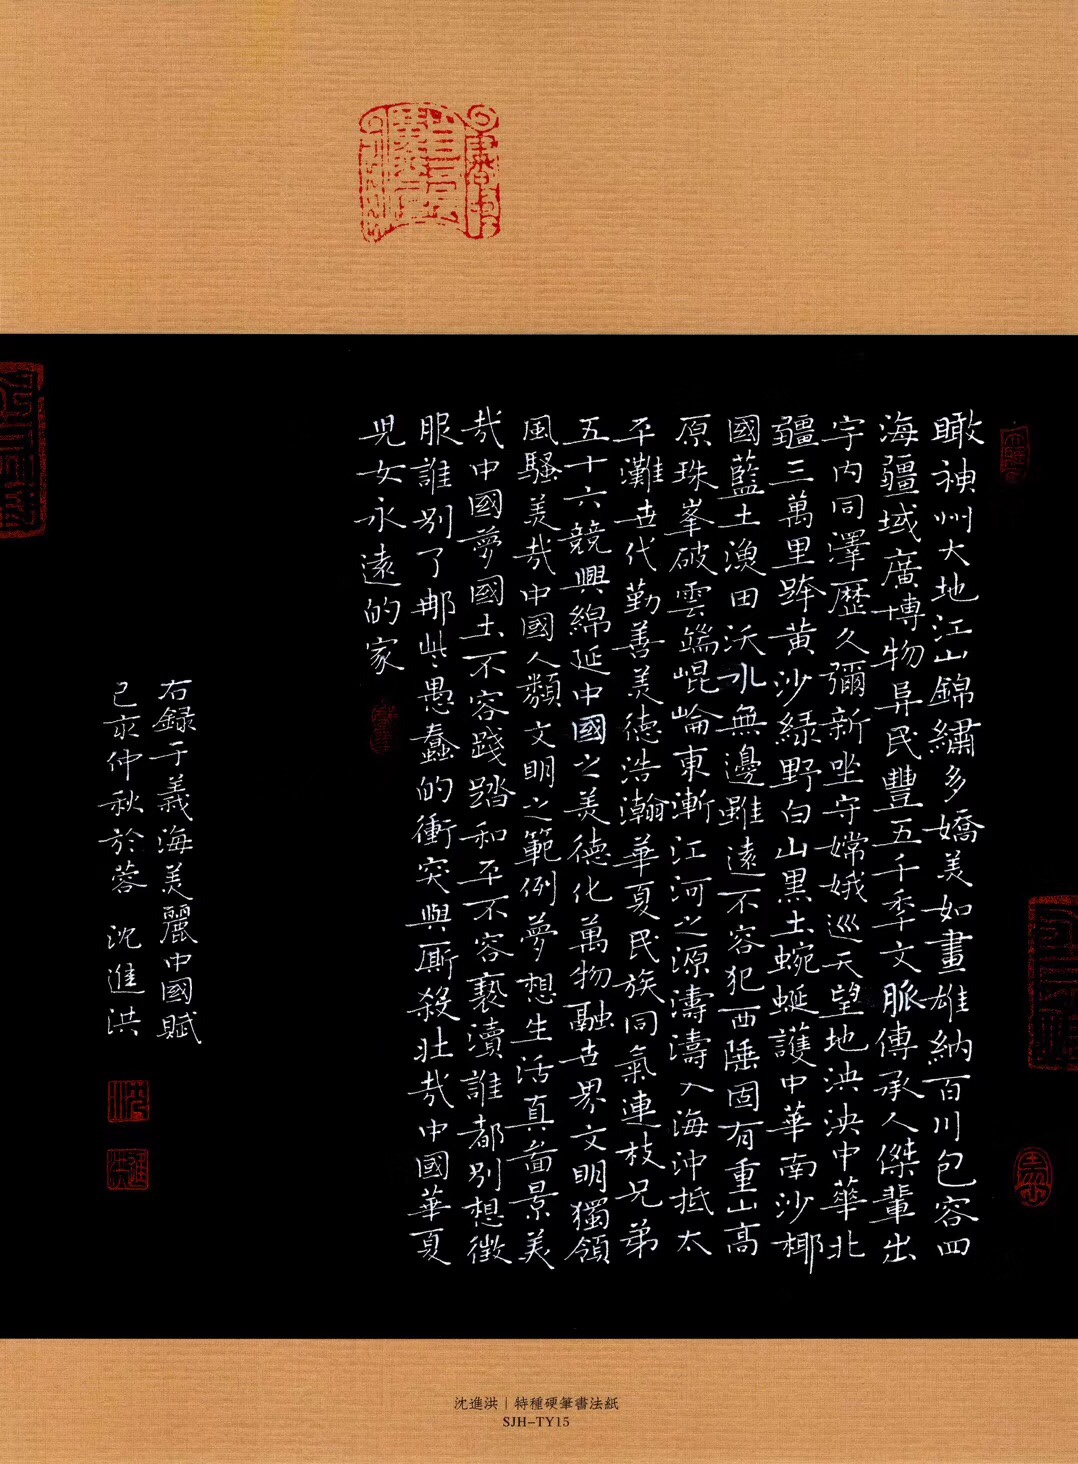 瞰神州大地江山錦繡多嬌美如畫雄納百川包容四
海疆域廣博物异民豐五千季文脈傳承人傑輩出
宇内同澤歷久彌新坐守嫦娥巡天望地泱泱中華北
疆三萬里跨黄沙緑野白山黑土蜿蜒護中華南沙椰
國藍土漁田沃水無邊雖遠不容犯西陲固有重山高
原珠峯破雲端崐崘東漸江河之源濤濤入海沖抵太
平灘世代勤善美德浩瀚華夏民族同氣連枝兄弟
五十六競興綿延中國之美德化萬物融世界文明獨領
風騷美哉中國人類文明之範例夢想生活真啚景美
哉中國夢國土不容踐踏和平不容褻瀆誰都别想徵
服誰别了那些愚蠢的衝突與厮殺壯哉中國華夏
児女永遠的家
右録于義海美麗中國賦
己亥仲秋於蓉 沈進洪
沈進洪｜特種硬筆書法紙
SJH-TY15